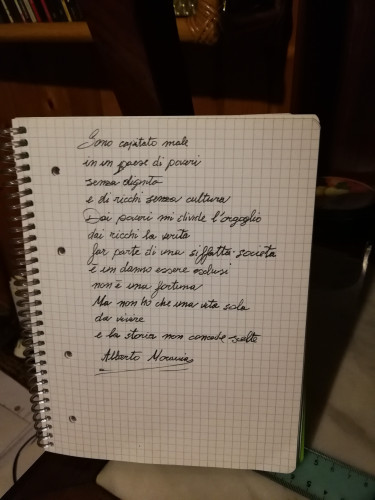 Sono capitato male
in un paese di poveri
senza dignita
e di ricchi senza cultura
Dai poveri mi divide l'orgoglio
dai ricchi la verità
far parte di una siffatta società
è un danno essere esclusi
non è una fortuna
Ma non ho che una vita sola
da vivere
e la storia non concede scelte
Alberto Moravia